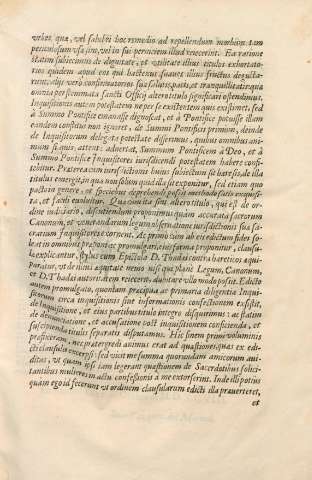 vrbes quæ, vel salubri hoc remedio ad repellendum morbum tam
periculosum vsæ sint, vel in sui perniciem illud reiecerint. Ex ratione
statim subiecimus de dignitate, et vtilitate illius titulos exhortato-
rios quidem apud eos qui hactenus suaues illius fructus degusta-
runt, alijs verò confirmatorios suæ salutis, pacis, et tranquillitatis; quæ
omnia per summata sancti Officij altero titulo significari ostendimus.
Inquisitionis autem potestatem ne per se existentem quis existimet, sed
à Summo Pontifice emanasse dignoscat, et à Pontifice potuisse illam
eandem constitui non ignoret, de Summi Pontificis primùm, deinde
de Inquisitorum delegata potestate differimus, quibus omnibus ani-
mum si quis attente aduertat, Summum Pontificem à Deo, et à
Summo Pontifice Inquisitores iurisdicendi potestatem habere confi-
tebitur. Præterea cum iurisdictioni huius subiectum sit hæresis, de illa
titulus emergit, in qua non solum quid illa sit exponitur, sed etiam qua
pacto in genere, et speciebus deprehendi possit methodo satis exquisi-
ta, et facili euoluitur.
dine iudiciario, disserendum proponimus quàm accurata sacrorum
Canonum, et venerandarum legum obseruatione iurisdictionis suæ sa-
crarum Inquisitores vtantur. Ac primò cum ab eis edictum fidei so-
leat in omnibus præponi ac promulgari, eius forma proponitur, clausu-
læ explicantur, stylus cum Epistola D. Thadæi contra hæreticos aqui-
paratur, vt de illius æquitate nemo nisi qui plane Legum, Canonum,
et D. Thadæi autoritatem reiecerit, dubitare vllo modo possit. Edicto
autem promulgato, quandam præcipua ac primaria diligentia Inqui-
sitorum circa inquisitionis siue informationis confectionem existit,
de Inquisitione, et eius partibus titulo integro disquirimus: ac statim
de denunciatione, et accusatione post inquisitionem conficienda, et
suscipienda titulis separatis disputamus. Hic finem primi voluminis
præfixeram, nec prætergredi animus erat ad quæstiones quas ex edi-
cti clausulis excerpsi: sed vicit me summa quorundam amicorum aui-
ditas, vt quam ipsi iam legerant quæstionem de Sacerdotibus solici-
tantibus mulieres in actu confessionis à me extorserint. Inde illi potius
quàm ego id fecerunt vt ordinem clausularum edicti illa præuerteret,
et